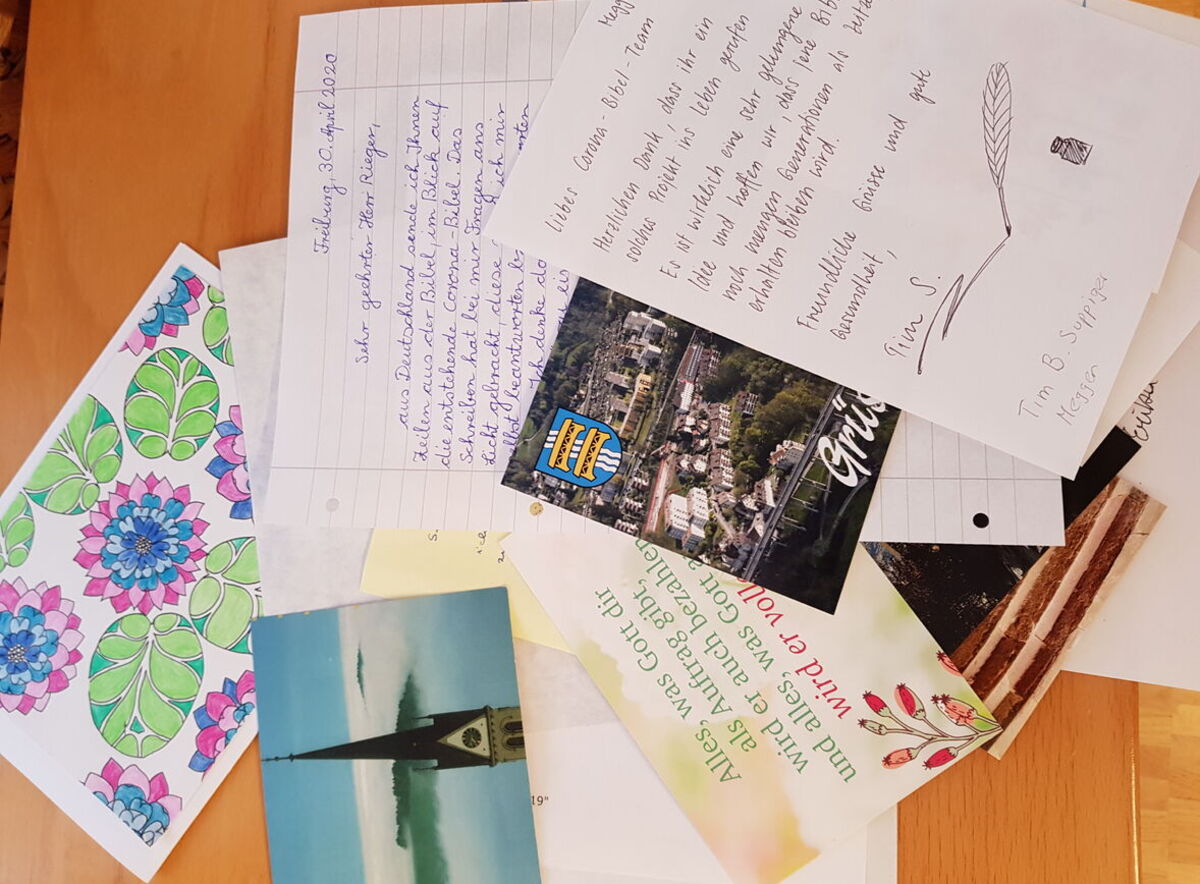 Freiburg, 30. April 2020
Sehr geehrter Herr Rieger,
aus Deutschland sende ich Ihnen
Zeilen aus der Bibel, im Blick auf
die entstehende Corona-Bibel. Das
Schreiben hat bei mir Fragen ans
Licht gebracht, diese ich mir
selbst beantworten
Ich denke
Megg
Liebes Corona-Bibel-Team
Herzlichen Dank, dass ihr ein
solches Projekt ins Leben gerufen
Es ist wirklich eine sehr gelungene
Idee und hoffen wir, dass jene Bib
noch mengen Generationen als
erhalten bleiben wird.
Freundliche Grüsse und gute
Gesundheit,
Tim S.
Tim B. Suppiger
Meggen
Grü
Alles, was Gott dir
als Auftrag gibt,
wird er auch bezahlen
und alles, was Gott
wird er voll
19"